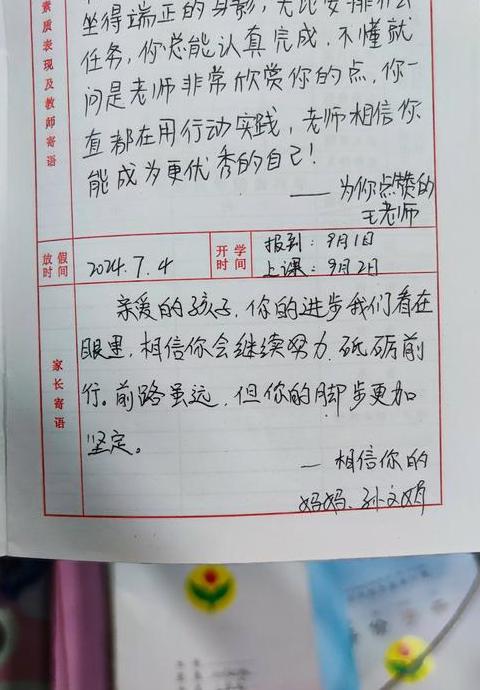 素质表现及教师寄语
坐得端正的身影，无论安排什么
任务，你总能认真完成，不懂就
问是老师非常欣赏你的点，你一
直都在用行动实践，老师相信你
能成为更优秀的自己！
——为你点赞的
王老师
放假时间
2024.7.4
开学时间
报到：9月1日
上课：9月2日
家长寄语
亲爱的孩子，你的进步我们看在
眼里，相信你会继续努力，砥砺前
行。前路虽远，但你的脚步更加
坚定。
—相信你的
妈妈、孙文娟